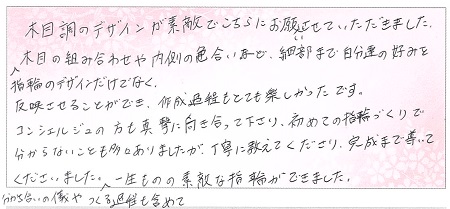 木目調のデザインが素敵でこちらにお願いさせていただきました。
木目の組み合わせや内側の色合いなど、細部まで自分達の好みを
指輪のデザインだけでなく、
反映させることができ、作成過程もとても楽しかったです。
コンシェルジュの方も真摯に向き合って下さり、初めての指輪づくりで
分からないことも多々ありましたが、丁寧に教えてくださり、完成まで導いて
くださいました。一生ものの素敵な指輪ができました。
分かち合いの儀や つくる過程も含めて